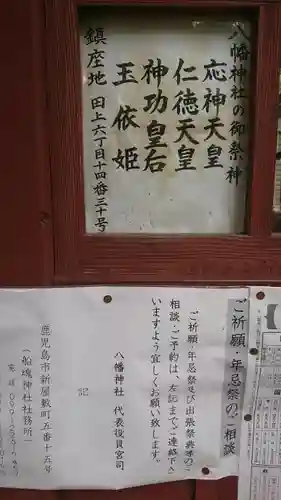 八幡神社の御祭神
応神天皇
仁徳天皇
神功皇后
玉依姫
鎮座地 田上六丁目十四番三十号
ご祈願・年忌祭のご相談
ご祈願・年忌祭及び出張祭典等の
相談・ご予約は、左記までご連絡下さ
いますよう宜しくお願い致します。
八幡神社 代表役員宮司
記
鹿児島市新屋敷町五番十五号
(船魂神社社務所)
電話